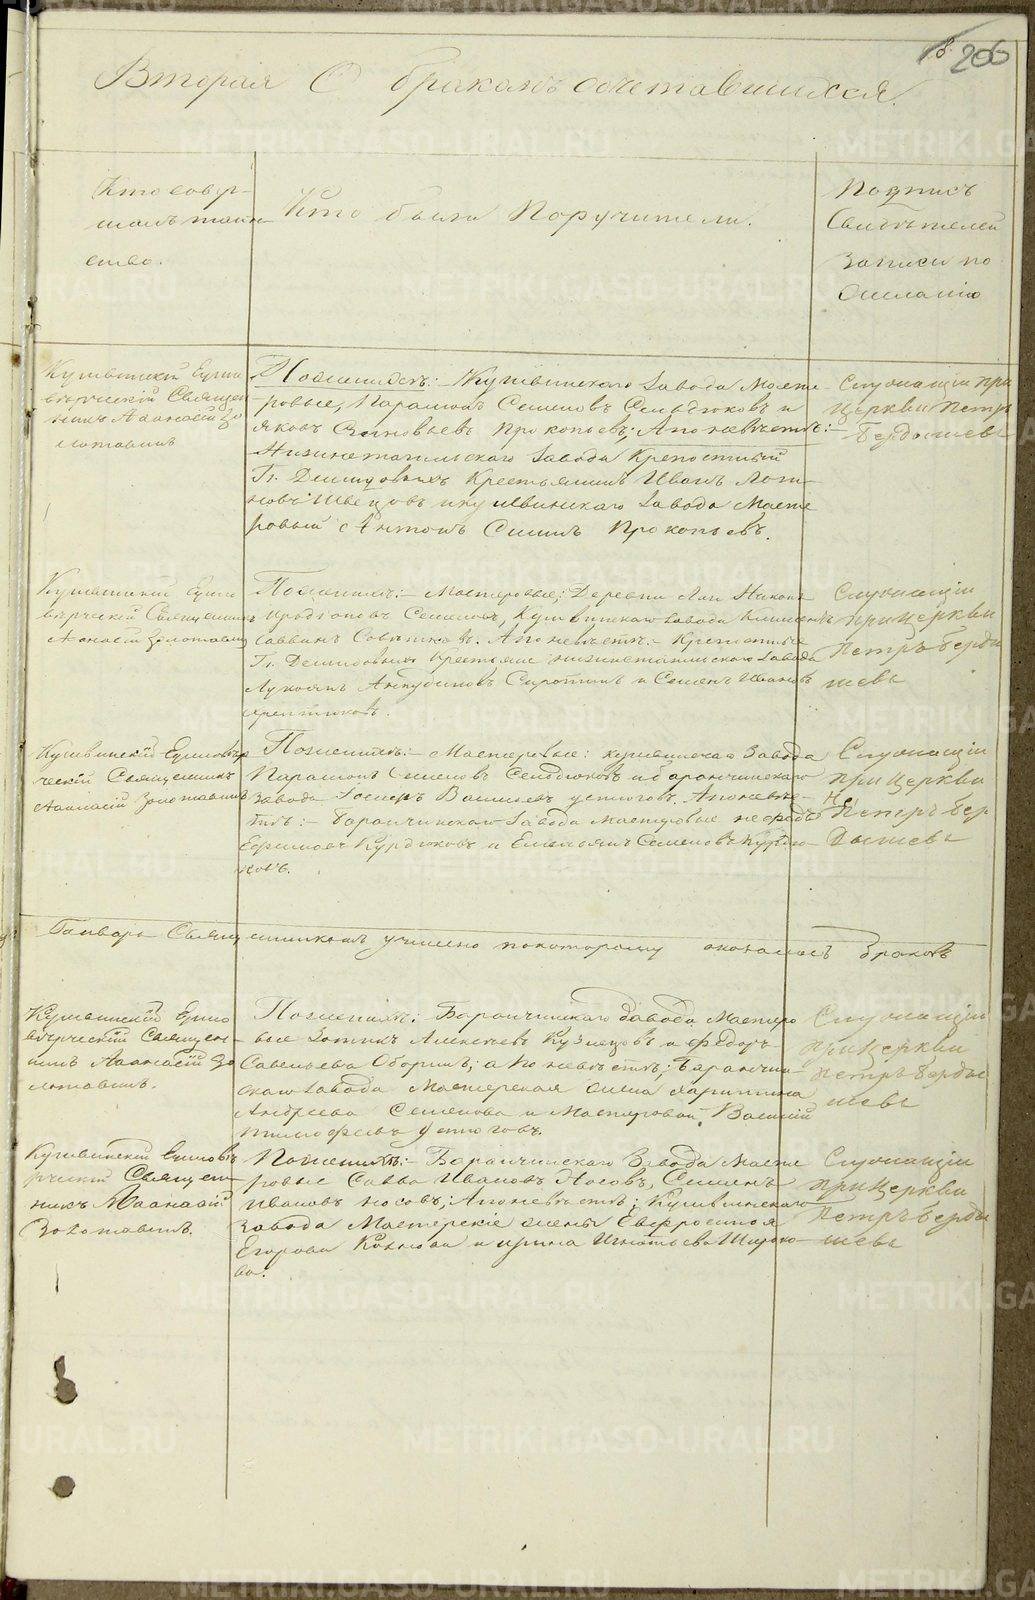 206
Вторая О бракомъ сочетавшихся.
Кто совер-
шалъ таин-
ство.
Кто были Поручители.
Подпись
Свидѣтелей
Записи по
желанію
Кушвинскій Едино
вѣрческій Священ
никъ Афанасій Зо
лотавинъ
По женихѣ: Кушвинскаго завода Масте-
ровые, Парамонъ Семеновъ Сельдюковъ и
Яковъ Зиновьевъ Прокопьевъ; А по невѣстѣ:
Нижнетагильскаго завода Крепостный
Гг. Демидовыхъ Крестьянинъ Иванъ
Швецовъ и Кушвинскаго завода Масте
ровый Антонъ Прокопьевъ.
Служащій при
Церкви Петръ
Бердышевъ
Кушвинскій Едино
вѣрческій Священникъ
Афанасій Золотавинъ
По женихѣ:- Мастеровые; Деревни Лаи
Семеновъ, Кушвинскаго завода
Саввинъ. А по невѣстѣ:- Крепостные
Гг. Демидовыхъ Крестьяне нижнетагильскаго завода
Сиротинъ и Семенъ Ивановъ
Служащій
при церкви
Петръ Берды
шевъ
Кушвинскій Единовѣр
ческій Священникъ
Афанасій Золотавинъ
По женихѣ:- Мастеровые: кушвинскаго завода
Парамонъ Семеновъ Сельдюковъ и баранчинскаго
завода Васильевъ устюговъ. А по невѣс-
тѣ:- баранчинскаго завода мастеровые
Ефимовъ Курдюковъ и Емельянъ Семеновъ Курдю-
ковъ.
Служащій
при церкви
Петръ Бер
дышевъ
Священникомъ учинено покоторому оказалось браковъ
Кушвинскій Едино
вѣрческій Священ-
никъ Афанасій Зо
лотавинъ.
По женихѣ: Баранчинскаго завода Мастеро
вые Зотикъ Алексѣевъ Кузнецовъ и Федоръ
Савельевъ Оборинъ; а По невѣстѣ; Баранчин-
скаго завода Мастерская жена Харитина
Андреева Семенова и Мастеровой Василій
Тимофѣевъ Устюговъ.
Служащій
при церкви
Петръ Берды
шевъ
Кушвинскій Единовѣ
рческій Священ-
никъ Афанасій
Золотавинъ.
По женихѣ:- Баранчинскаго Завода Масте
ровые Савва Ивановъ Носовъ, Семенъ
Ивановъ Носовъ; А по невѣстѣ; Кушвинскаго
завода Мастерскіе жены Евфросинья
Егорова и ирина Игнатьева Широко-
ва.
Служащій
при церкви
Петръ Берды
шевъ
METRIKI.GASO-URAL.RU